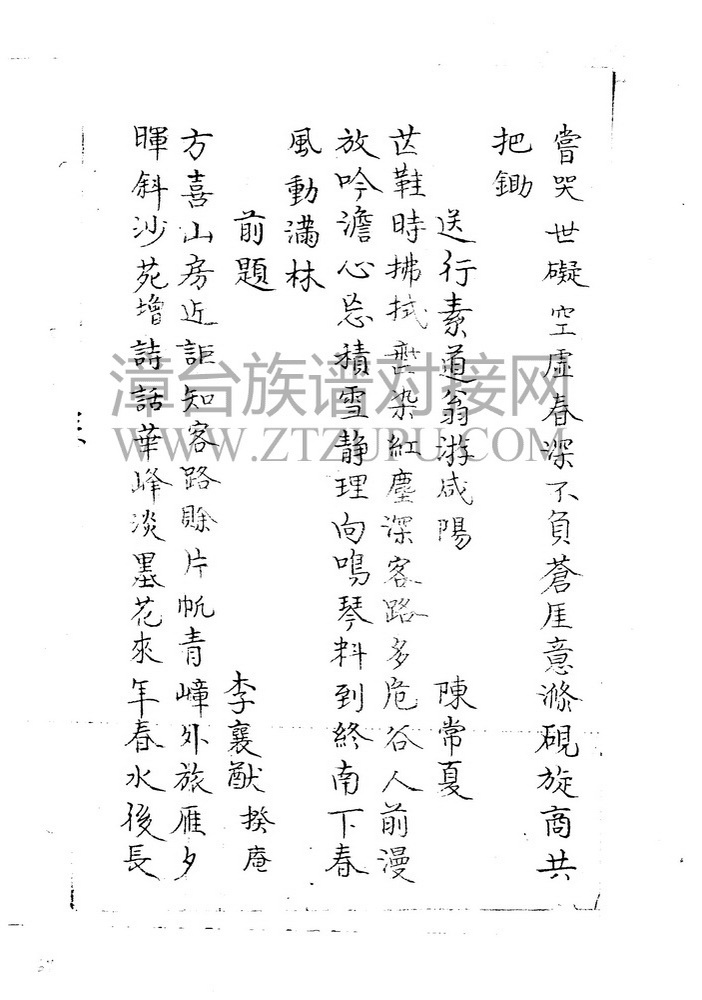 嘗哭世礙空虛春深不負蒼厓意滌硯旋商共
把鋤
送行素道翁游咸陽 陳常夏
芒鞋時拂拭塵染紅塵深客路多危谷人前漫
放吟澹心忘積雪静理向鳴琴料到終南下春
風動滿林
前題 李襄猷 揆庵
方喜山房近詎知客路賒片帆青嶂外旅雁夕
暉斜沙苑增詩話華峰淡墨花來年春水後長
漳台族谱对接网
WWW.ZTZUPU.COM